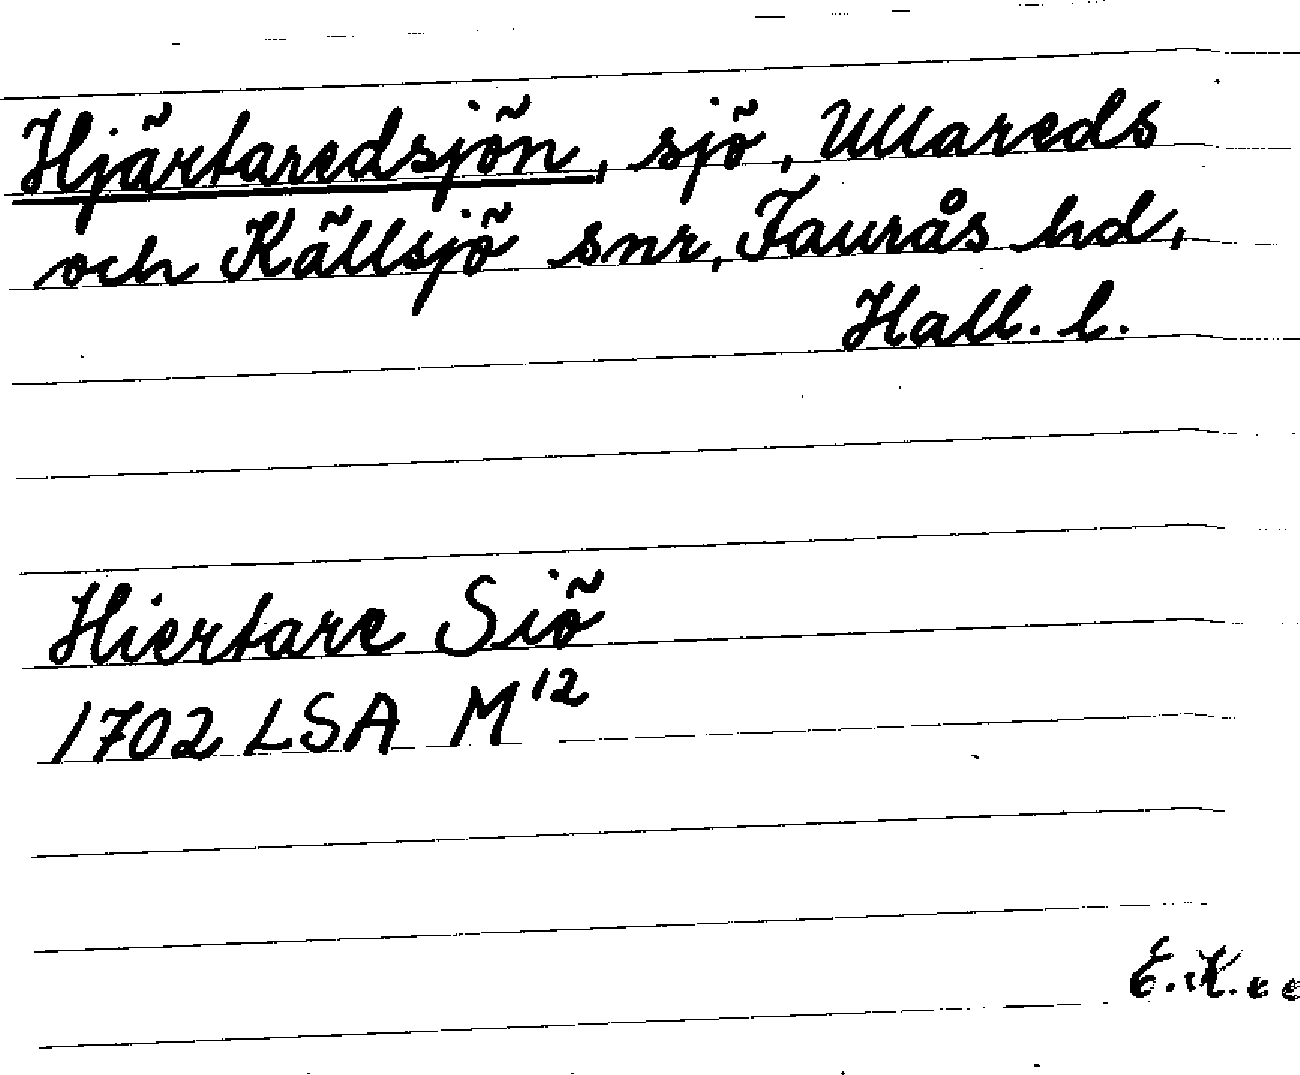 Hjärtaredsjön, sjö, Ullareds
och Källsjö snr, Faurås hd,
Hall. l.
Hiertare Siö
1702 LSA M12
E.K.